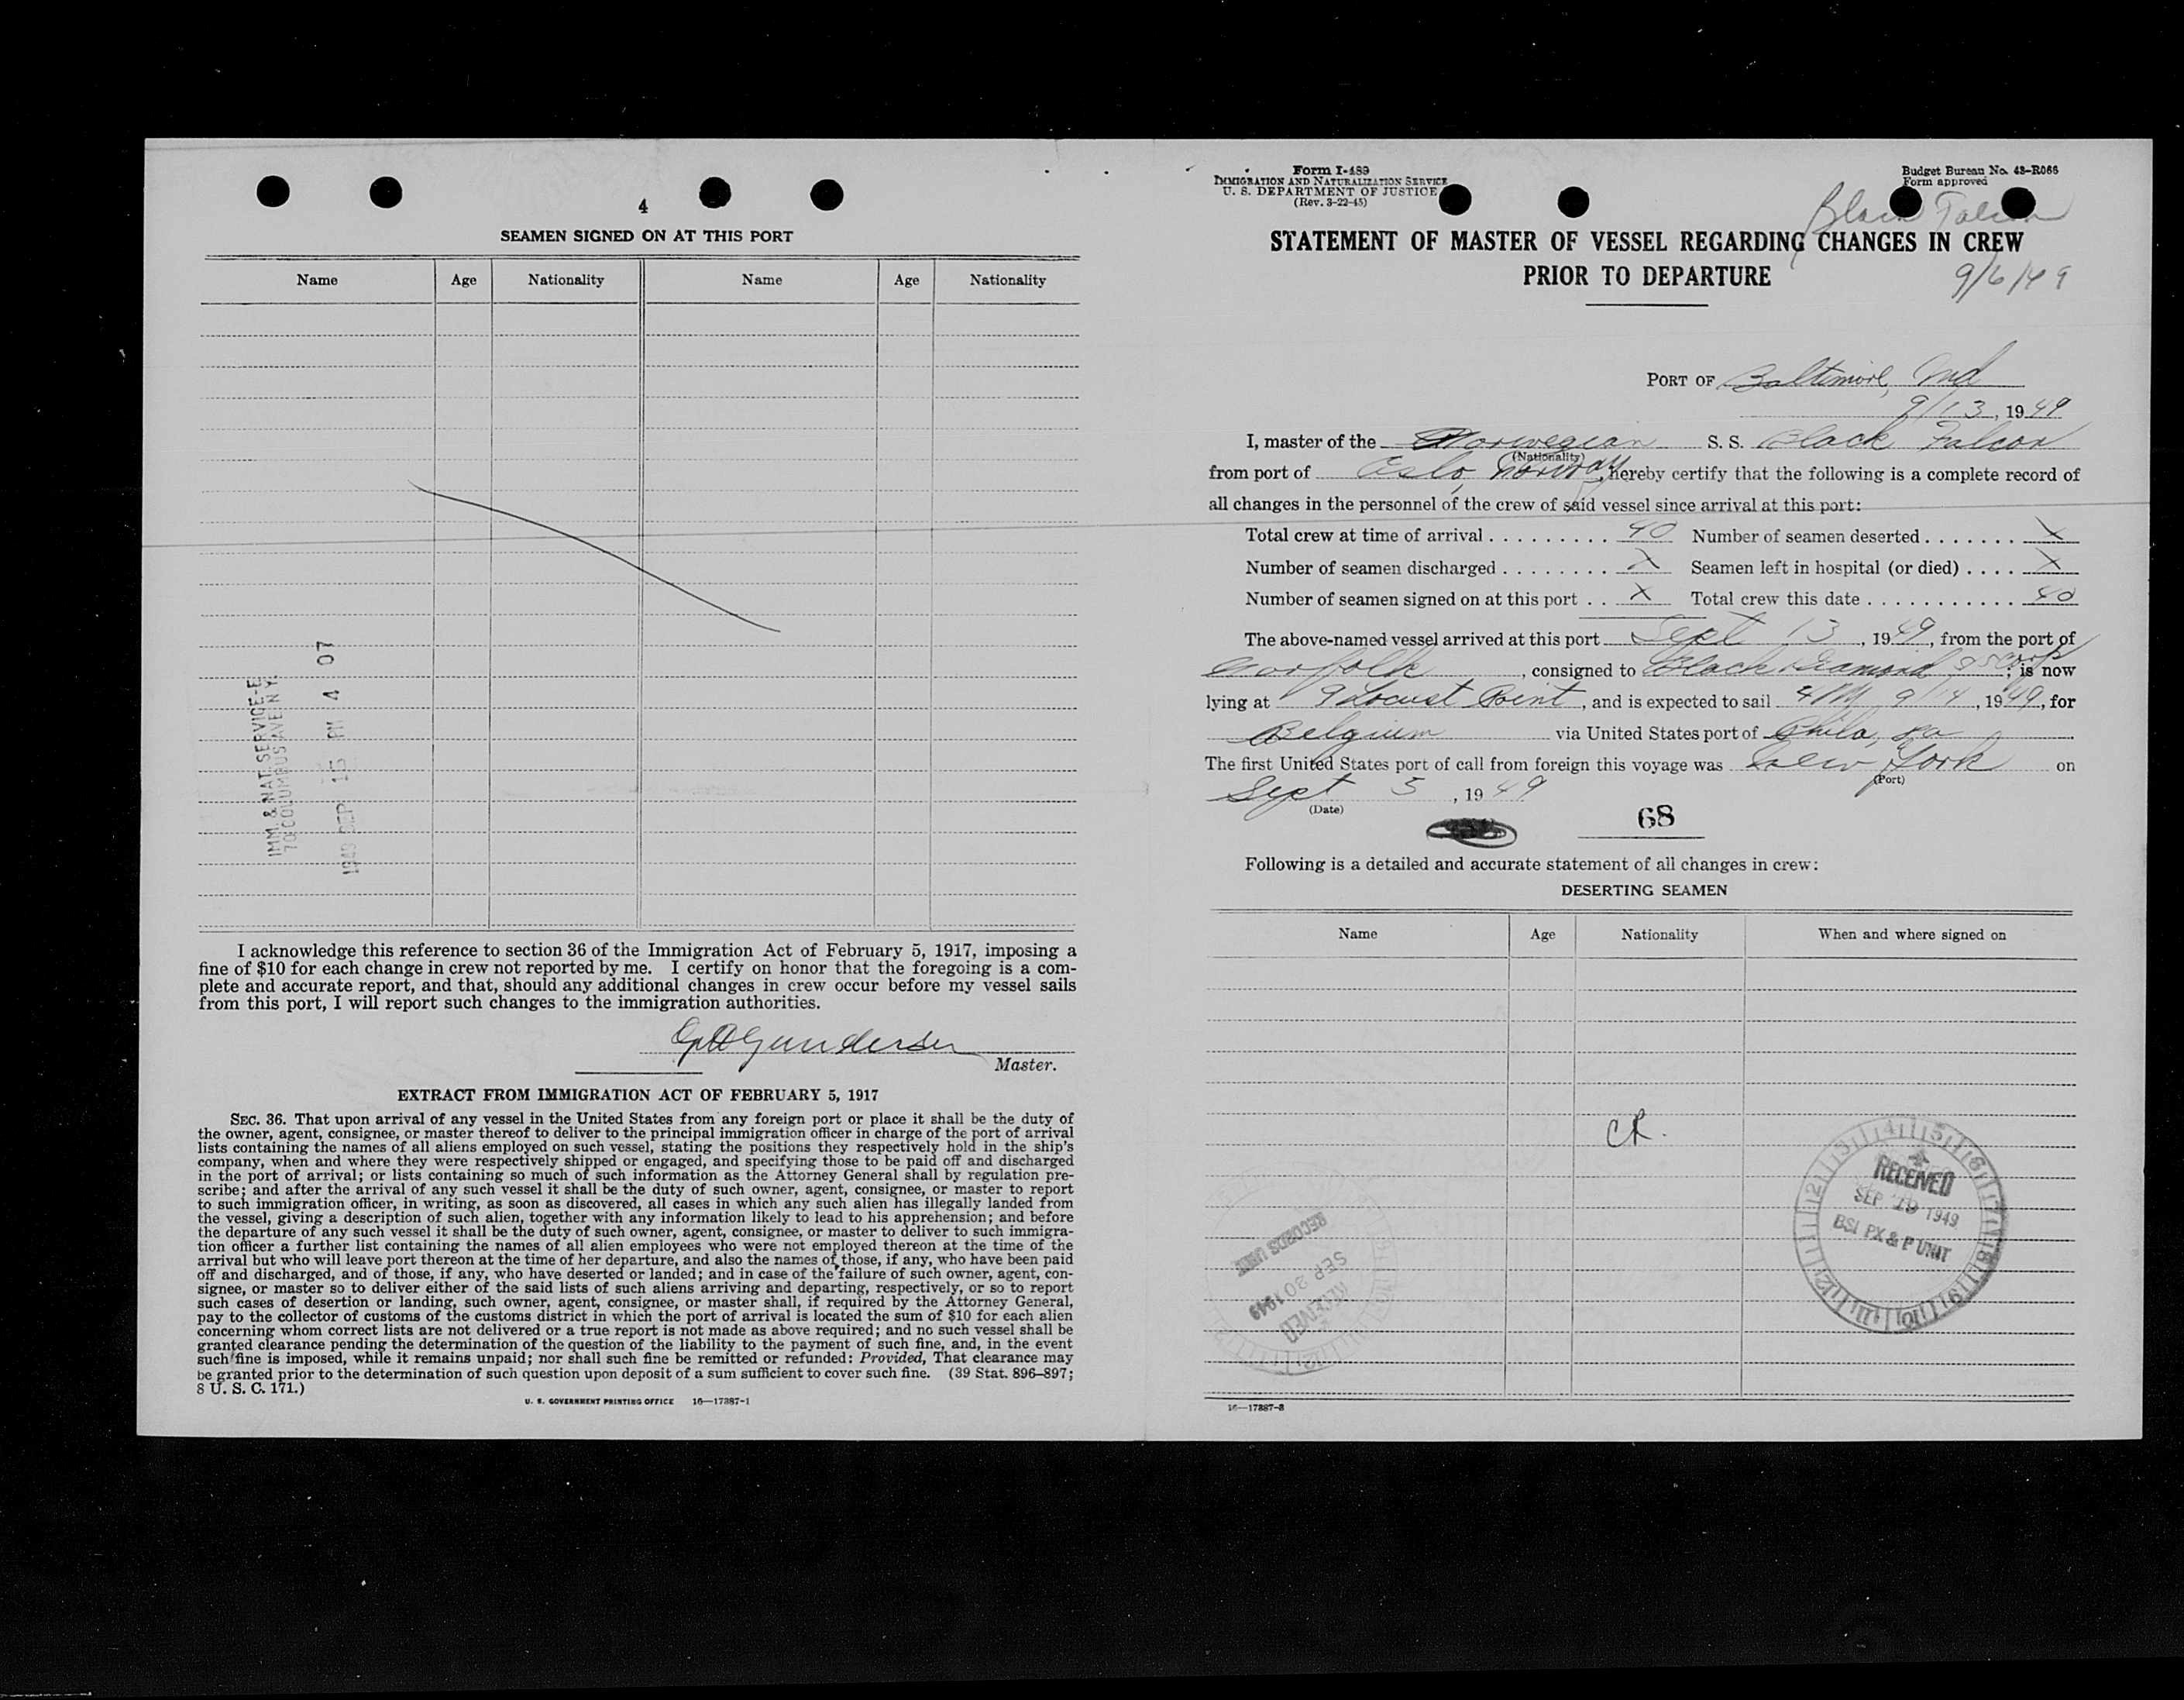 4
SEAMEN SIGNED ON AT THIS PORT
Name Age Nationality Name Age Nationality
IMM. & NAT. SERVICE-E
70 COLUMBUS AVE N Y
1949 SEP 15 PM 4 07
I acknowledge this reference to section 36 of the Immigration Act of February 5, 1917, imposing a
fine of $10 for each change in crew not reported by me. I certify on honor that the foregoing is a com-
plete and accurate report, and that, should any additional changes in crew occur before my vessel sails
from this port, I will report such changes to the immigration authorities.
Gundersen
Master.
EXTRACT FROM IMMIGRATION ACT OF FEBRUARY 5, 1917
SEC. 36. That upon arrival of any vessel in the United States from any foreign port or place it shall be the duty of
the owner, agent, consignee, or master thereof to deliver to the principal immigration officer in charge of the port of arrival
lists containing the names of all aliens employed on such vessel, stating the positions they respectively hold in the ship's
company, when and where they were respectively shipped or engaged, and specifying those to be paid off and discharged
in the port of arrival; or lists containing so much of such information as the Attorney General shall by regulation pre-
scribe; and after the arrival of any such vessel it shall be the duty of such owner, agent, consignee, or master to report
to such immigration officer, in writing, as soon as discovered, all cases in which any such alien has illegally landed from
the vessel, giving a description of such alien, together with any information likely to lead to his apprehension; and before
the departure of any such vessel it shall be the duty of such owner, agent, consignee, or master to deliver to such immigra-
tion officer a further list containing the names of all alien employees who were not employed thereon at the time of the
arrival but who will leave port thereon at the time of her departure, and also the names of those, if any, who have been paid
off and discharged, and of those, if any, who have deserted or landed; and in case of the failure of such owner, agent, con-
signee, or master so to deliver either of the said lists of such aliens arriving and departing, respectively, or so to report
such cases of desertion or landing, such owner, agent, consignee, or master shall, if required by the Attorney General,
pay to the collector of customs of the customs district in which the port of arrival is located the sum of $10 for each alien
concerning whom correct lists are not delivered or a true report is not made as above required; and no such vessel shall be
granted clearance pending the determination of the question of the liability to the payment of such fine, and, in the event
such fine is imposed, while it remains unpaid; nor shall such fine be remitted or refunded: Provided, That clearance may
be granted prior to the determination of such question upon deposit of a sum sufficient to cover such fine. (39 Stat. 896–897;
8 U. S. C. 171.)
U. S. GOVERNMENT PRINTING OFFICE 16—17387-1
Form I-489
IMMIGRATION AND NATURALIZATION SERVICE
U. S. DEPARTMENT OF JUSTICE
(Rev. 3-22-45)
Budget Bureau No. 43–R066
Form approved
Black Falcon
STATEMENT OF MASTER OF VESSEL REGARDING CHANGES IN CREW
PRIOR TO DEPARTURE
9/6/49
PORT OF Baltimore, Md
9/13, 1949
I, master of the Norwegian S. S. Black Falcon
(Nationality)
from port of Oslo, Norway, hereby certify that the following is a complete record of
all changes in the personnel of the crew of said vessel since arrival at this port:
Total crew at time of arrival . . . . . . . . . 40 Number of seamen deserted . . . . . . . X
Number of seamen discharged . . . . . . . . X Seamen left in hospital (or died) . . . . X
Number of seamen signed on at this port . . X Total crew this date . . . . . . . . . . . . 40
The above-named vessel arrived at this port Sept 13, 1949, from the port of
Norfolk, consigned to Black Diamond SS Corp; is now
lying at 9 Locust Point, and is expected to sail 4 PM 9/14, 1949, for
Belgium via United States port of Phila, Pa.
The first United States port of call from foreign this voyage was New York on
(Port)
Sept 5, 1949
(Date)
68
Following is a detailed and accurate statement of all changes in crew:
DESERTING SEAMEN
Name Age Nationality When and where signed on
CR.
RECEIVED
SEP 29 1949
BSI PX & P UNIT
RECORDS UNIT
SEP 30 1949
RECEIVED
16—17387-3